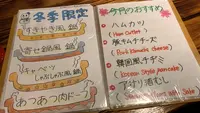 冬季限定
すきやき風 鍋
寄せ鍋風 鍋
キャベツ
あつあつ肉ドーフ
今月のおすすめ
ハムカツ
(Ham Cutlet)
豚キムチチーズ
(Pork Kimchi Cheese)
韓国風チヂミ
(Korean Style pancake)
アサリ酒むし